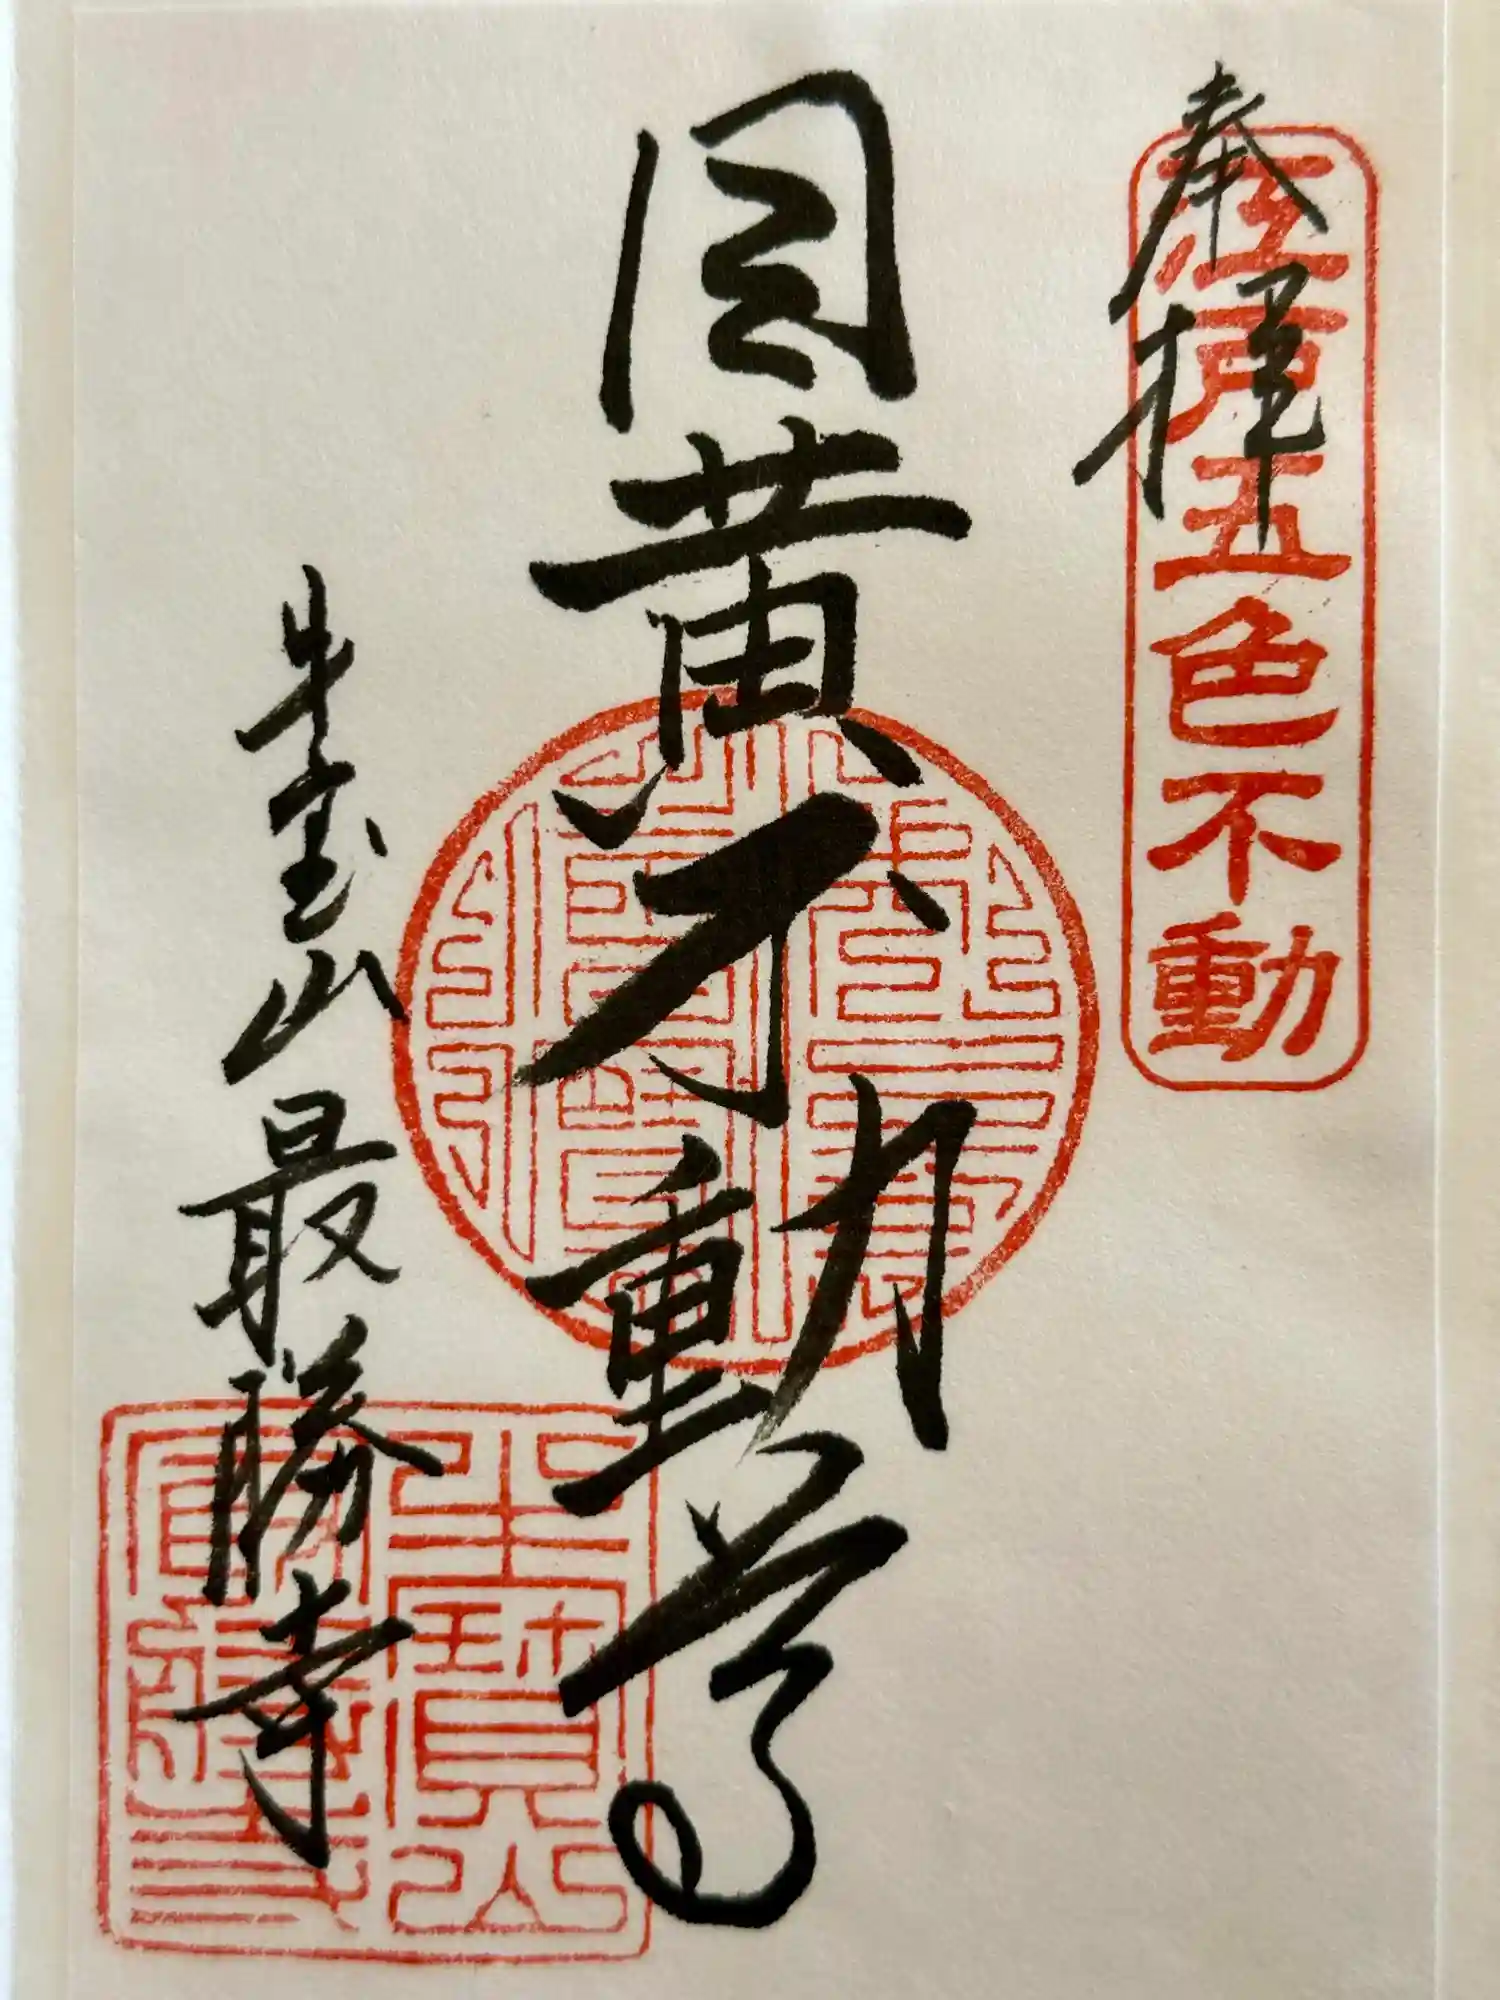 奉拝
江戸五色不動
目黄不動尊
牛宝山
最勝寺
牛寳山